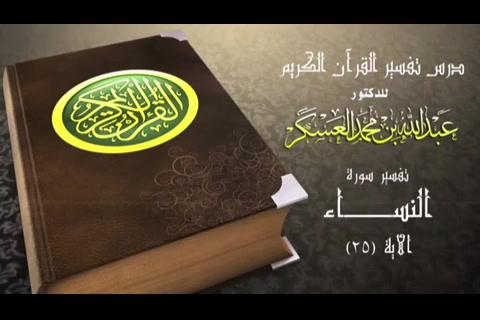 القرآن الكريم
درس تفسير القرآن الكريم
للدكتور
عبدالله بن محمد العسكر
تفسير سورة
النساء
الآية (٢٥)